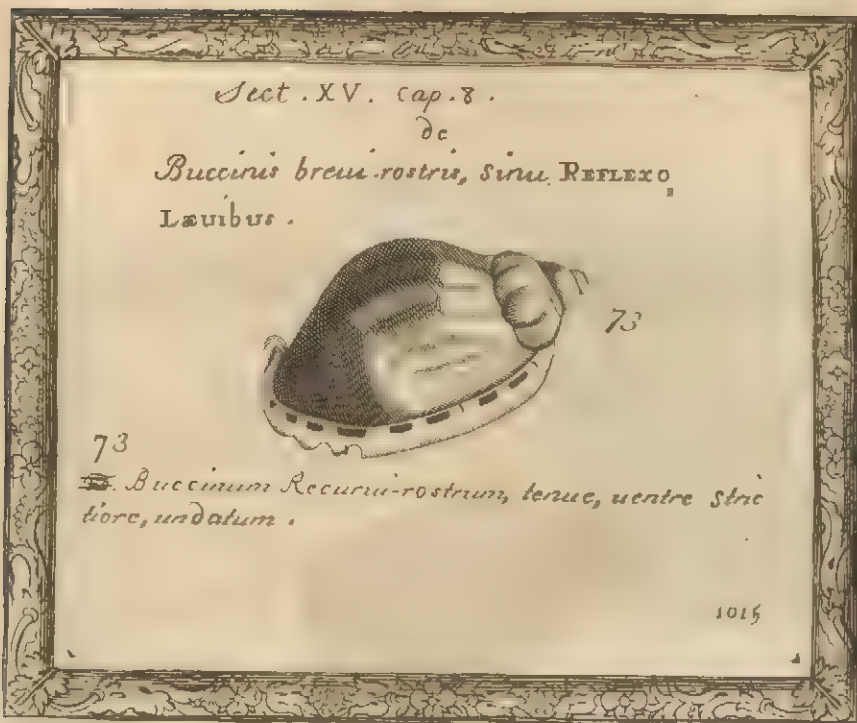 Sect. XV. Cap. 8.
de
Buccinis breui-rostris, sinu REFLEXO,
Læuibus.
73
73
Buccinum Recurui-rostrum, tenue, uentre stric
tiore, undatum.
1015